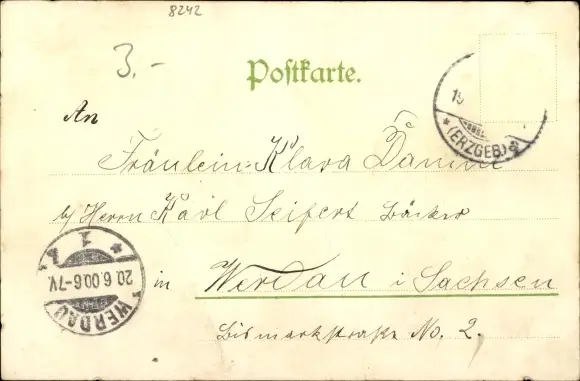 8242
3.-
Postkarte.
An
Fräulein Klara Damm
b/ Herrn Karl Seifert Bäcker
in Werdau i Sachsen
Bismarkstraße No. 2.
(ERZGEB)
WERDAU
20.6.00.6-7V.
1